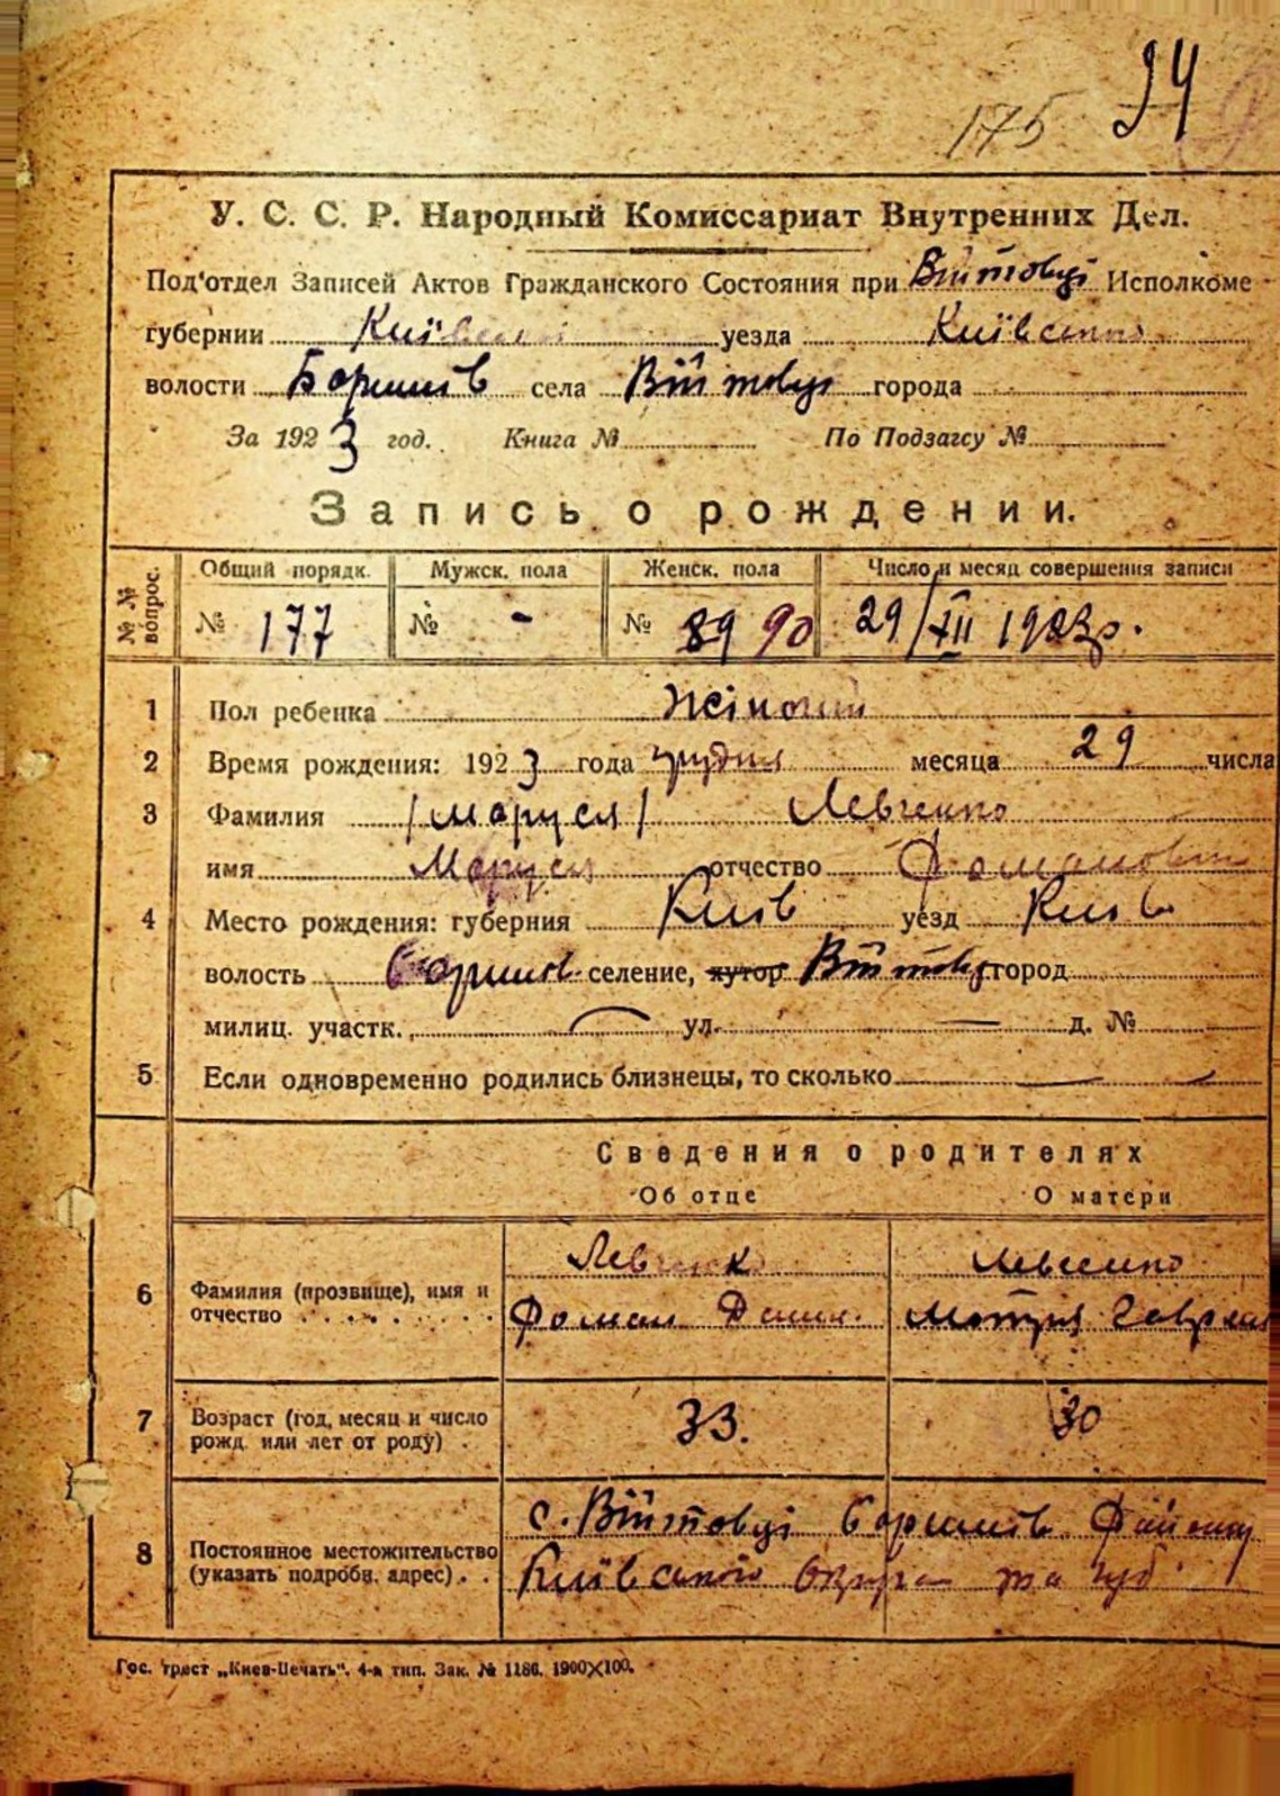 24
175
У. С. С. Р. Народный Комиссариат Внутренних Дел.
Под'отдел Записей Актов Гражданского Состояния при Війтовці Исполкоме
губернии Київської уезда Київського
волости Баришів села Війтовці города
За 1923 год. Книга № По Подзагсу №
Запись о рождении.
№ № вопрос. Общий порядк. Мужск. пола Женск. пола Число и месяц совершения записи
№ 177 № - № 89 90 29/XII 1923 р.
1 Пол ребенка Жіночий
2 Время рождения: 1923 года грудня месяца 29 числа
3 Фамилия /Маруся/ Левченко
имя Маруся отчество
4 Место рождения: губерния Київ уезд Київ
волость Баришів селение, хутор Війтовці город
милиц. участк. — ул. — д. №
5 Если одновременно родились близнецы, то сколько —
Сведения о родителях
Об отце О матери
Левченко Левченко
6 Фамилия (прозвище), имя и
отчество Фоман Данил. Мотря Гаврил
7 Возраст (год, месяц и число 33. 30
рожд. или лет от роду)
с. Війтовці Баришів. Району
8 Постоянное местожительство
(указать подробн. адрес) Київського округа та губ.
Гос. трест „Киев-Печать". 4-я тип. Зак. № 1186. 1900×100.